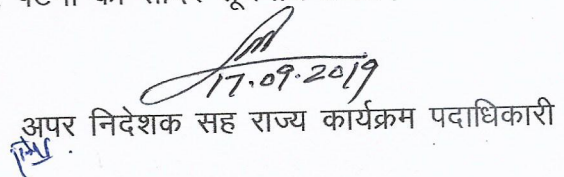 17.09.2019
अपर निदेशक सह राज्य कार्यक्रम पदाधिकारी